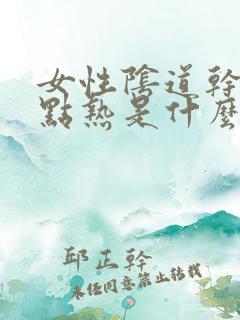 女性陰道幹
點熱是什麼
邱正幹
未经同意禁止转载